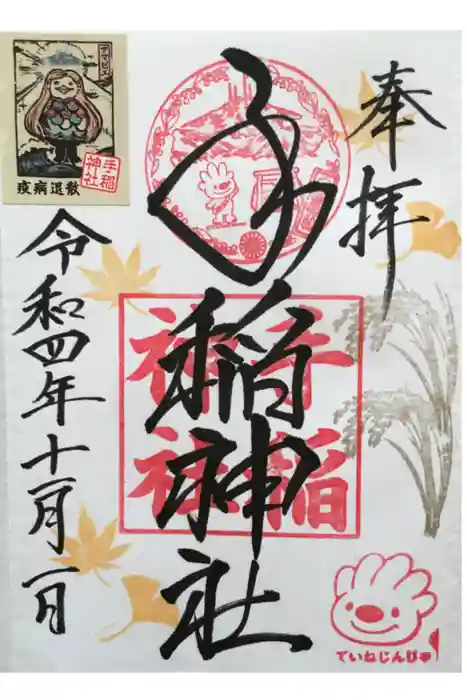 奉拝
手稲神社
令和四年十一月一日
手稲
神社
アマビエ
疫病退散
手稲
神社
ていねじんじゃ